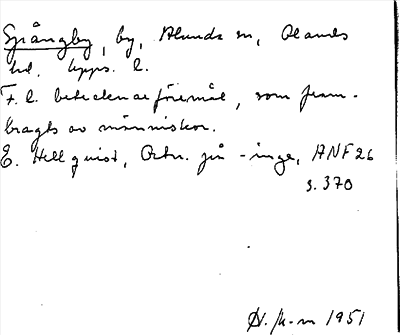 Spångby, by, Alunda sn, Olands
hd, Upps. l.
F. l. betecknar föremål, som fram-
bragts av människor.
E. Hellquist, Ortn. på -inge, ANF 26
s. 370
1951